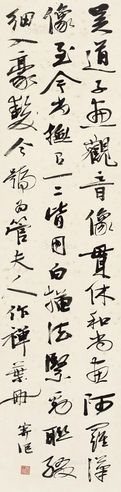 吴道子画观音像贯休和尚画阿罗汉
像至今尚橅一二皆用白描法紧劲联缀
细入豪发今稿为管夫人作禅叶册